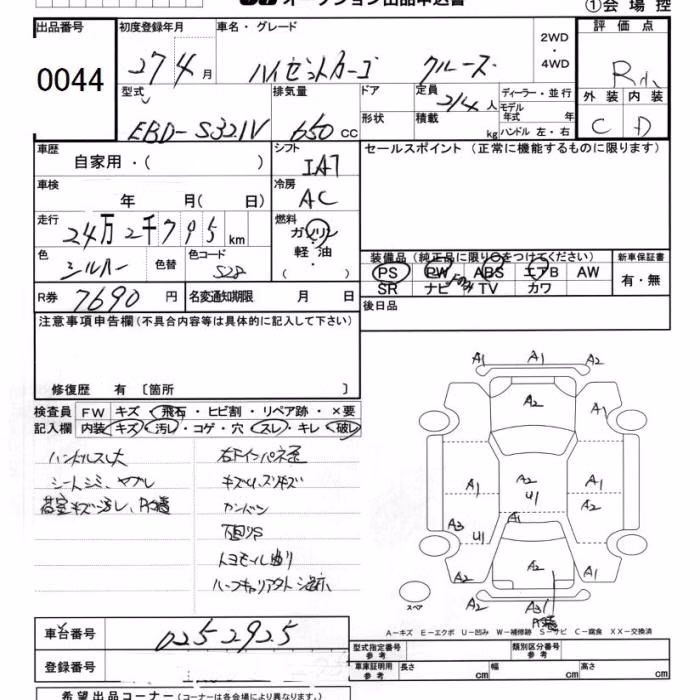 オークション出品申込書
①会場控
出品番号 初度登録年月 車名・グレード 2WD ・ 4WD 評価点
0044 27年4月 ハイゼットカーゴ クルーズ R
型式 排気量 ドア 定員 2/4人 ディーラー・並行 外装 内装
EBD-S321V 650cc 形状 積載 kg モデル年式 年 ハンドル 左・右 C D
車歴 自家用・( ) シフト IAT セールスポイント(正常に機能するものに限ります)
車検 年 月(日) 冷房 AC
走行 24万2千795km 燃料 ガソリン・軽油・( )
色 シルバー 色替 色コード S28
装備品(純正品に限り〇をつけてください) 新車保証書
PS PW ABS エアB AW 有・無
SR ナビ TV カワ
R券 7690円 名変通知期限 月 日 後日品
注意事項申告欄(不具合内容等は具体的に記入して下さい)
修復歴 有 〔箇所 〕
検査員記入欄 FW キズ・飛石・ヒビ割・リペア跡・×要
内装 キズ・汚レ・コゲ・穴・スレ・キレ・破レ
ハンドルスレ大 右Fインパネ歪
シートシミ、ヤブレ キズU、スリキズ
荷室キズ汚レ、
下回りS
A1 A1 A2
A2 A1
A1 A2 U1 A1 A2
A3 U1 A1
A2 A2 A1
A2 A3
スペア
A-キズ E-エクボ U-凹み W-補修跡 S-サビ C-腐食 XX-交換済
車台番号 0252925
型式指定番号 参考 類別区分番号 参考
登録番号 車庫証明用 参考 長さ cm 幅 cm 高さ cm
希望出品コーナー(コーナーは各会場により異なります。)